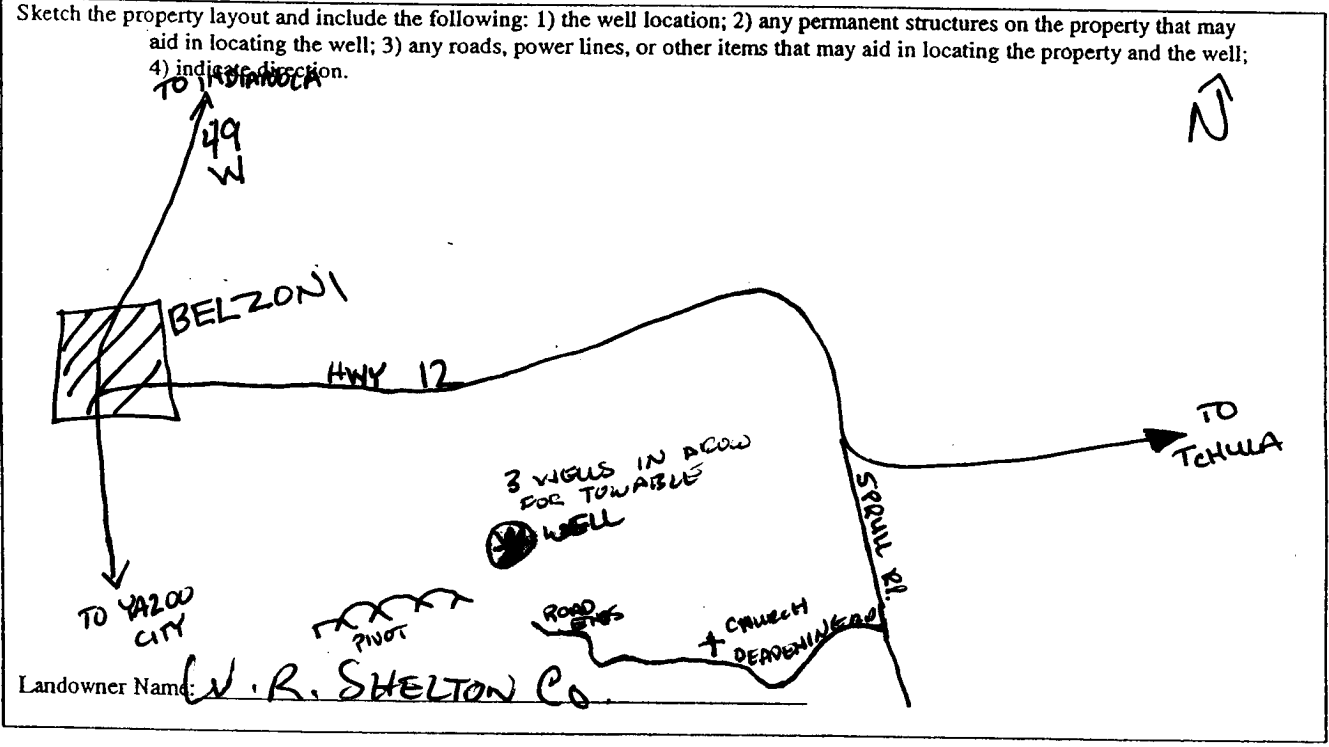 Sketch the property layout and include the following: 1) the well location; 2) any permanent structures on the property that may
aid in locating the well; 3) any roads, power lines, or other items that may aid in locating the property and the well;
4) indicate direction.
TO INDIANOLA
N
49
W
BELZONI
HWY 12
TO
TCHULA
3 WELLS IN A ROW
FOR TOWABLE
WELL
SPRUILL RD.
TO YAZOO
CITY
PIVOT
ROAD
ENDS
CHURCH
DEADENING RD
Landowner Name: W.R. SHELTON Co.